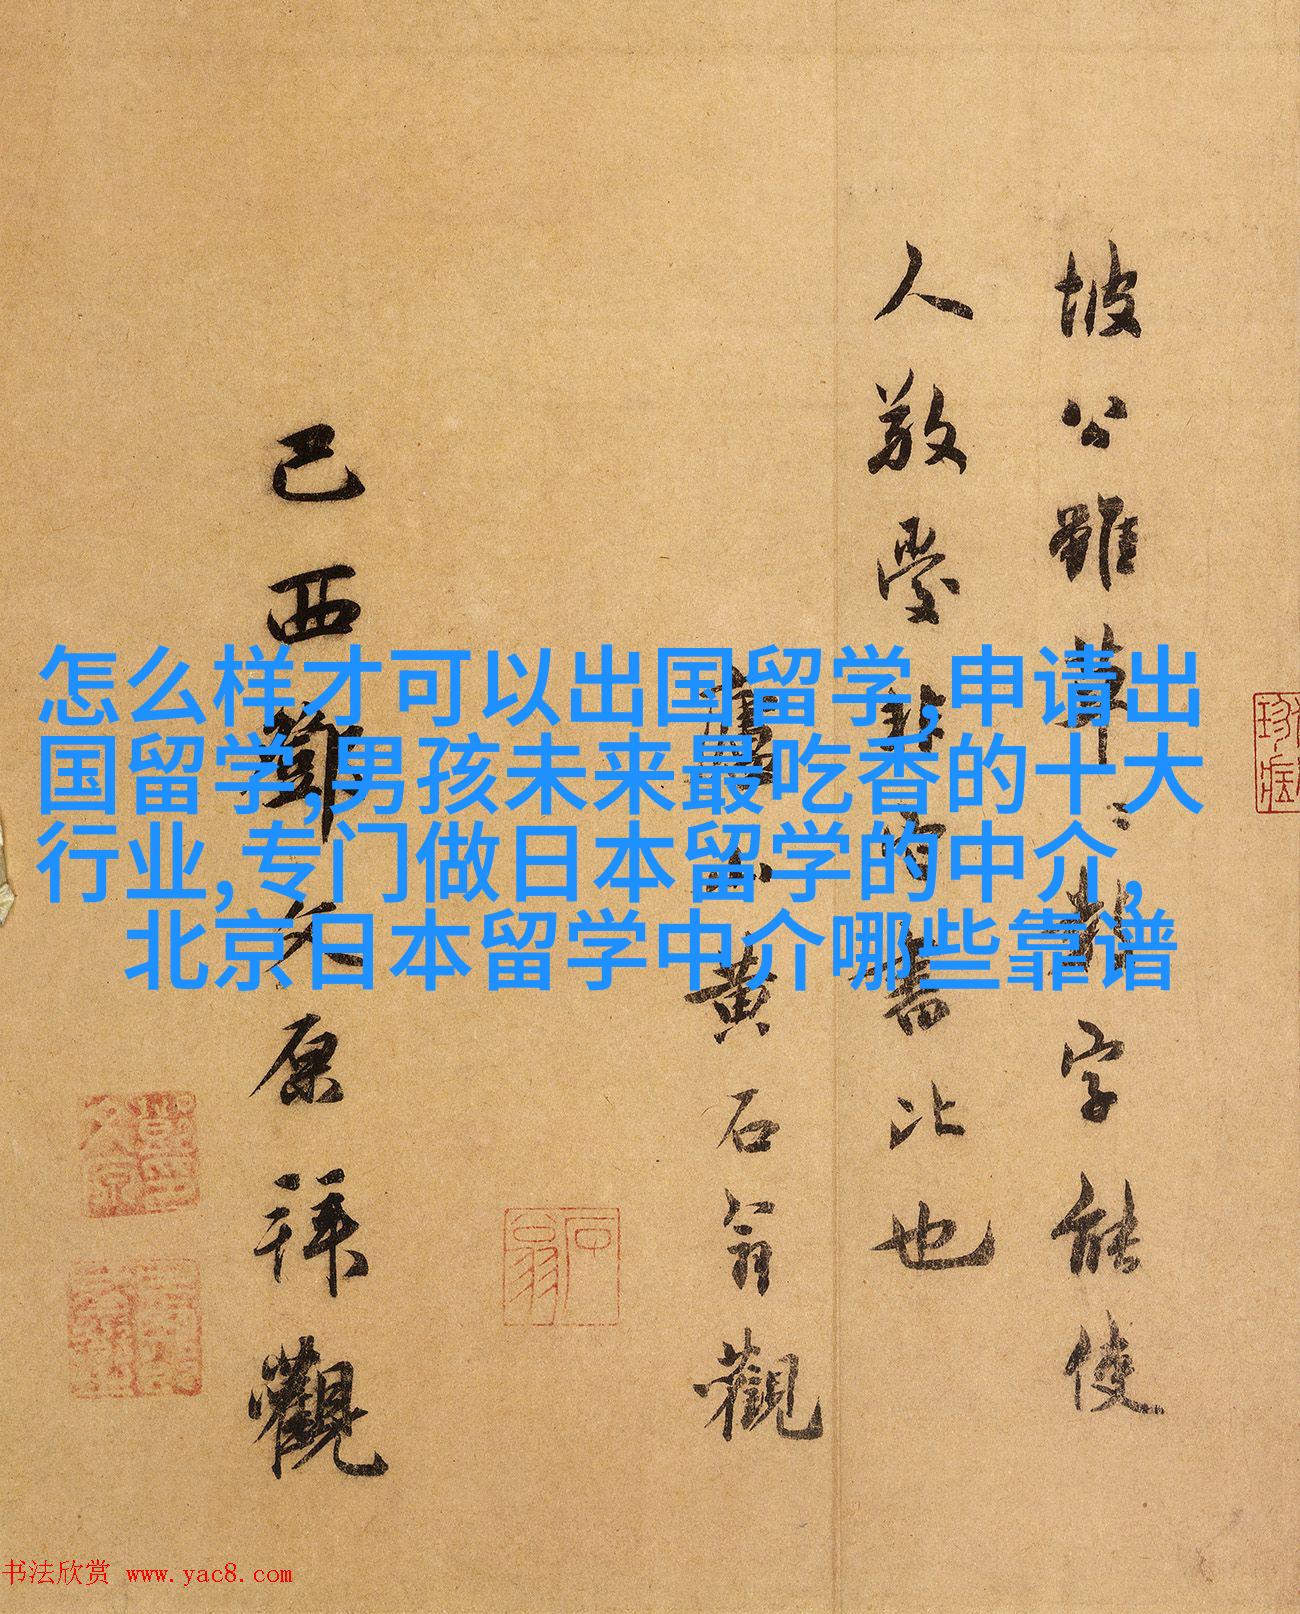 怎么样才可以出国留学,申请出
国留学,男孩未来最吃香的十大
行业,专门做日本留学的中介,
北京日本留学中介哪些靠谱
坡公雖草〻數字能使
人敬愛非書比也
廬山黃石翁觀
石翁
己酉鄧文原拜觀
书法欣赏 www.yac8.com